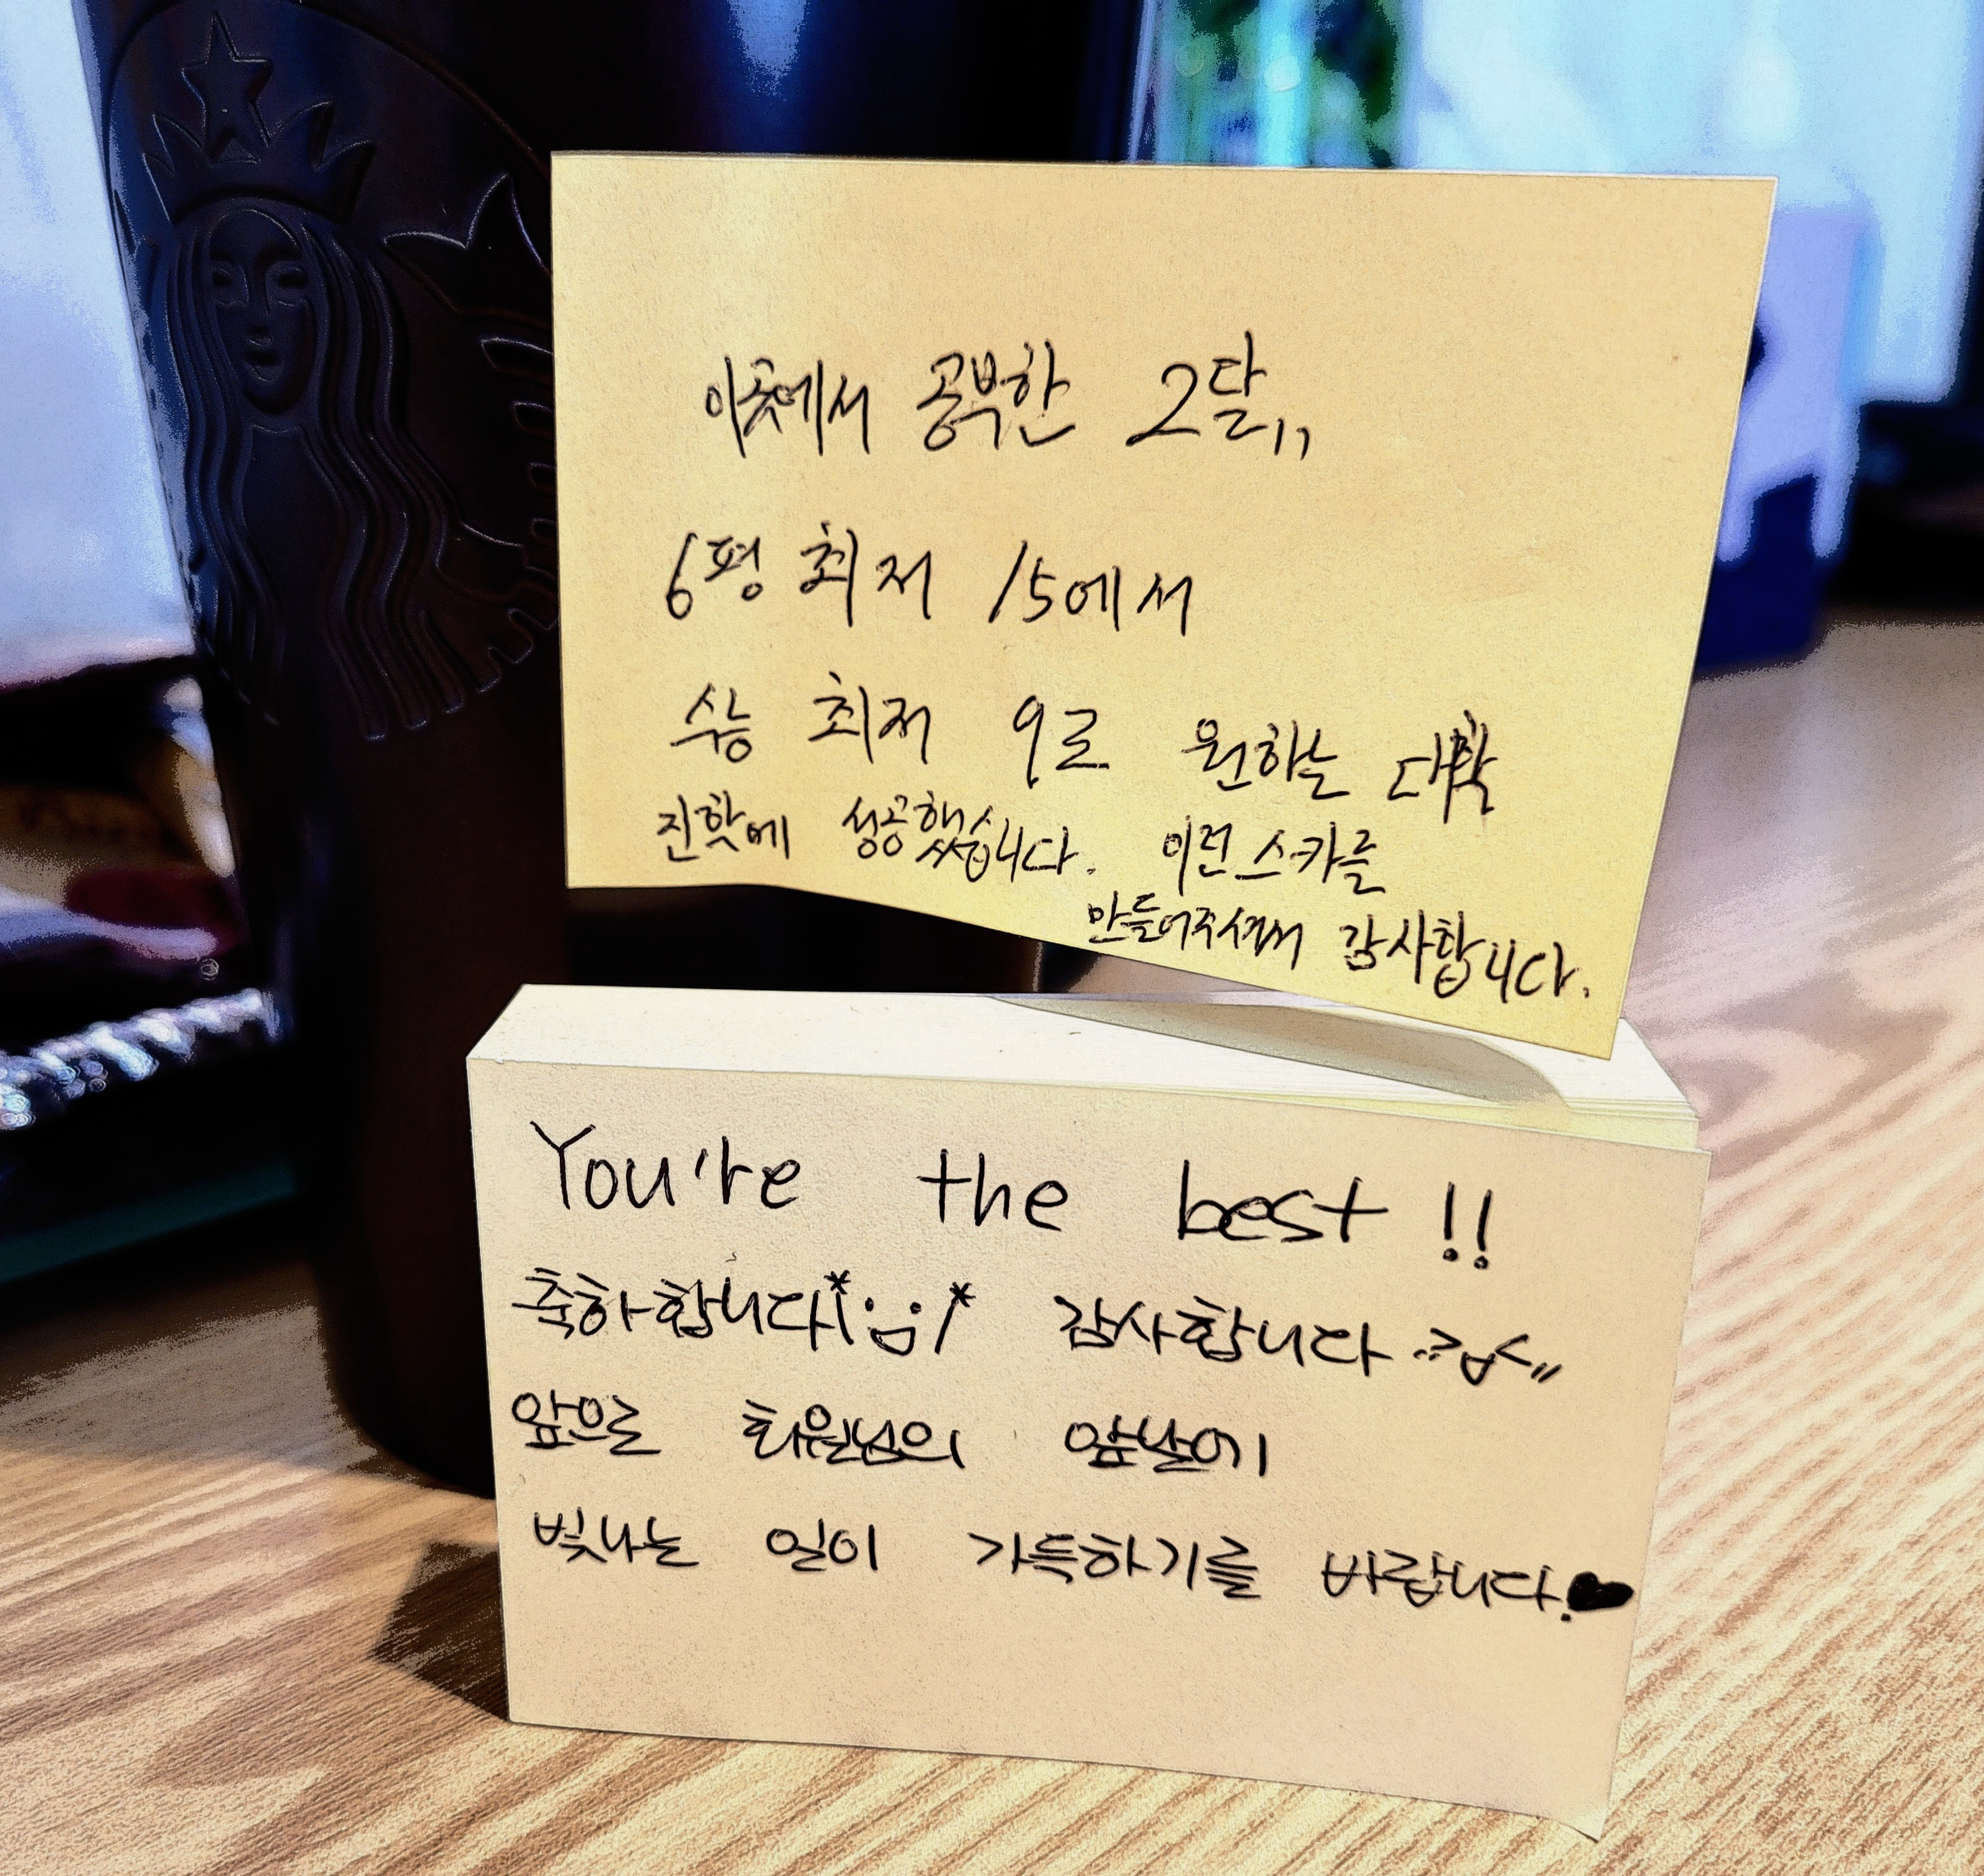 이곳에서 공부한 2달,,
6평 최저 15에서
수능 최저 9로 원하는 대학
진핫에 성공했습니다. 이런 스카를
만들어주셔서 감사합니다.
You're the best !!
축하합니다*(:ㅁ:)* 감사합니다 〃>ㅂ<〃
앞으로 회원님의 앞날에
빛나는 일이 가득하기를 바랍니다.♥